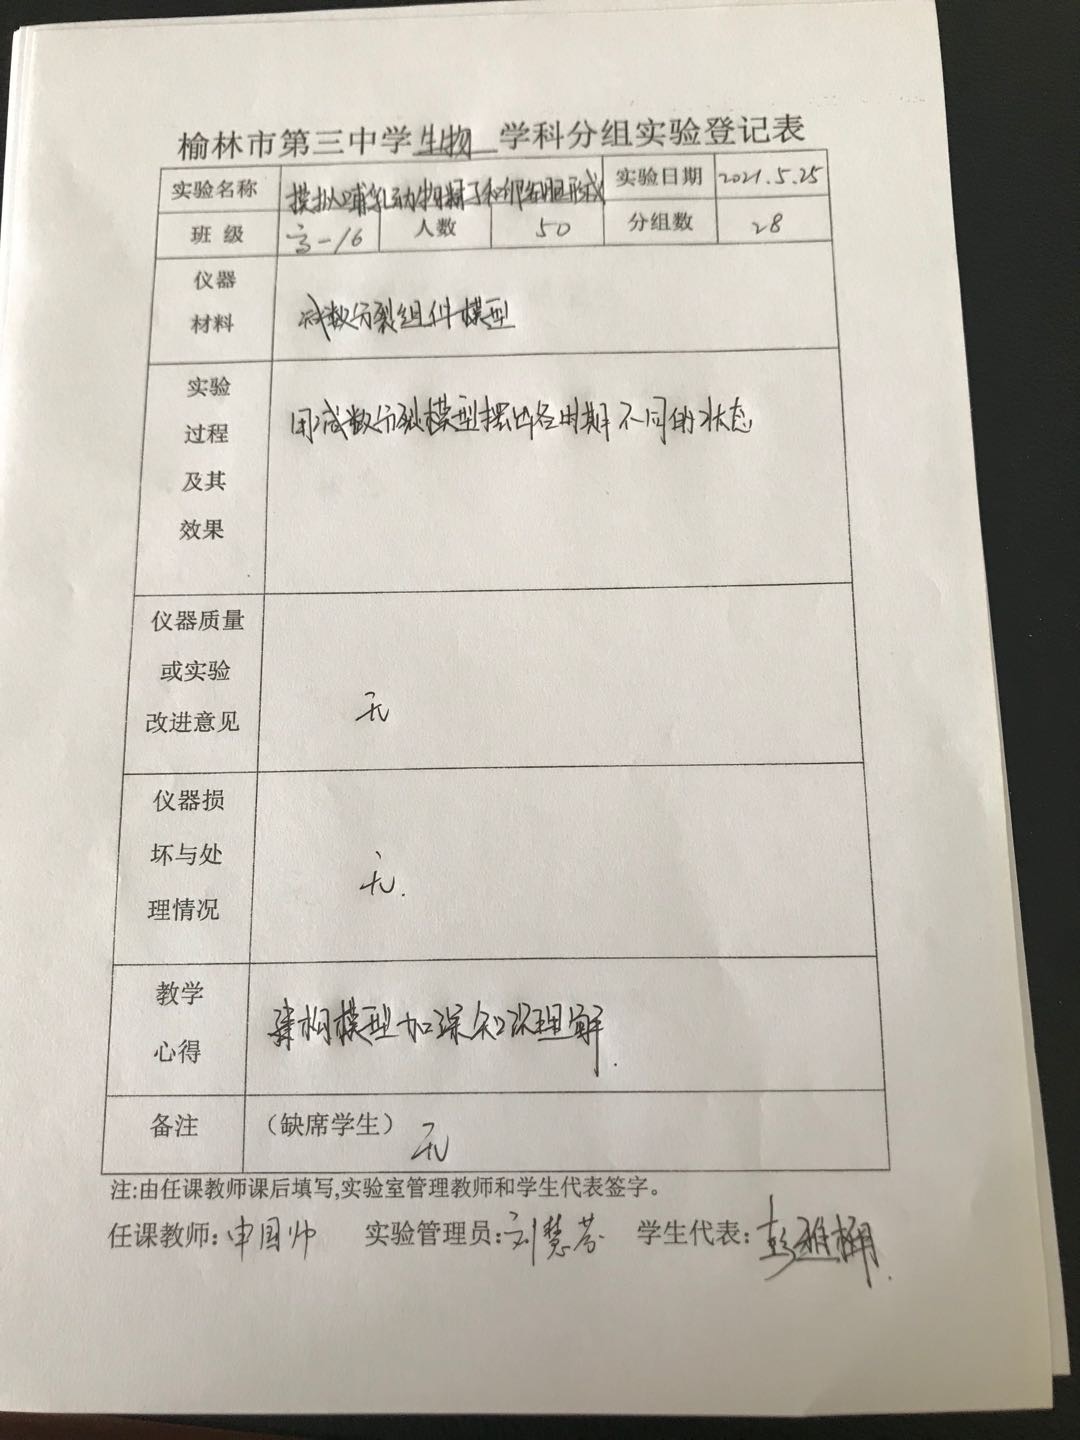 榆林市第三中学生物 学科分组实验登记表
实验名称 模拟哺乳动物精子和卵细胞形成 实验日期 2021.5.25
班 级 高一16 人数 50 分组数 28
仪器
材料
减数分裂组件模型
实验
过程
及其
效果
用减数分裂模型摆出各时期不同的状态
仪器质量
或实验
改进意见
无
仪器损
坏与处
理情况
无.
教学
心得
建构模型加深知识理解.
备注 (缺席学生) 无
注:由任课教师课后填写,实验室管理教师和学生代表签字。
任课教师: 申国帅 实验管理员: 刘慧芬 学生代表: 彭雅